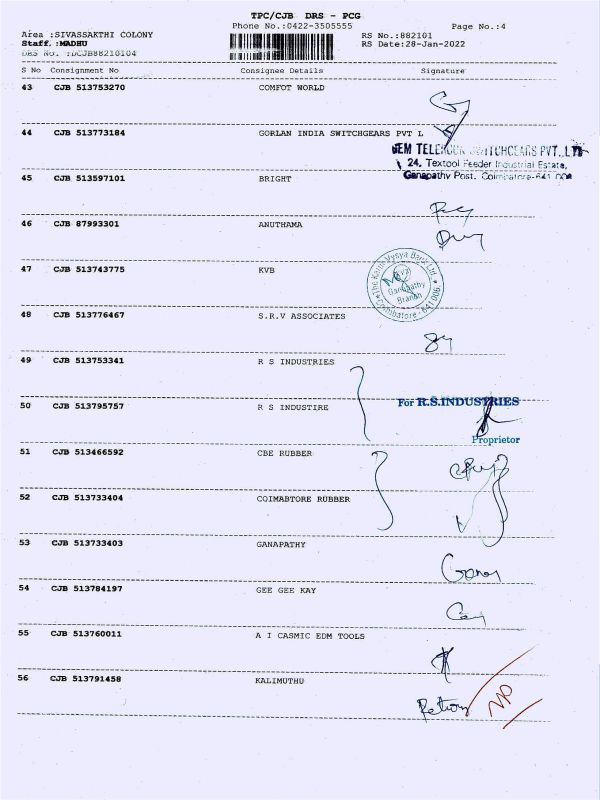 TPC/CJB DRS - PCG
Phone No.:0422-3505555 Page No.:4
Area :SIVASSAKTHI COLONY RS No.:882101
Staff :MADHU RS Date:28-Jan-2022
DRS No. :DCJB88210104
S No Consignment No Consignee Details Signature
43 CJB 513753270 COMFOT WORLD
44 CJB 513773184 GORLAN INDIA SWITCHGEARS PVT L
SWITCHGEARS PVT., LTD
24, Textool Feeder Industrial Estate,
Ganapathy Post, Coimbatore-641 006
45 CJB 513597101 BRIGHT
46 CJB 87993301 ANUTHAMA
47 CJB 513743775 KVB
The Karur Vysya Bank Ltd.
Ganapathy
Branch
Coimbatore - 641 006
48 CJB 513776467 S.R.V ASSOCIATES
49 CJB 513753341 R S INDUSTRIES
50 CJB 513795757 R S INDUSTIRE
For R.S.INDUSTRIES
Proprietor
51 CJB 513466592 CBE RUBBER
52 CJB 513733404 COIMABTORE RUBBER
53 CJB 513733403 GANAPATHY
54 CJB 513784197 GEE GEE KAY
55 CJB 513760011 A I CASMIC EDM TOOLS
56 CJB 513791458 KALIMUTHU